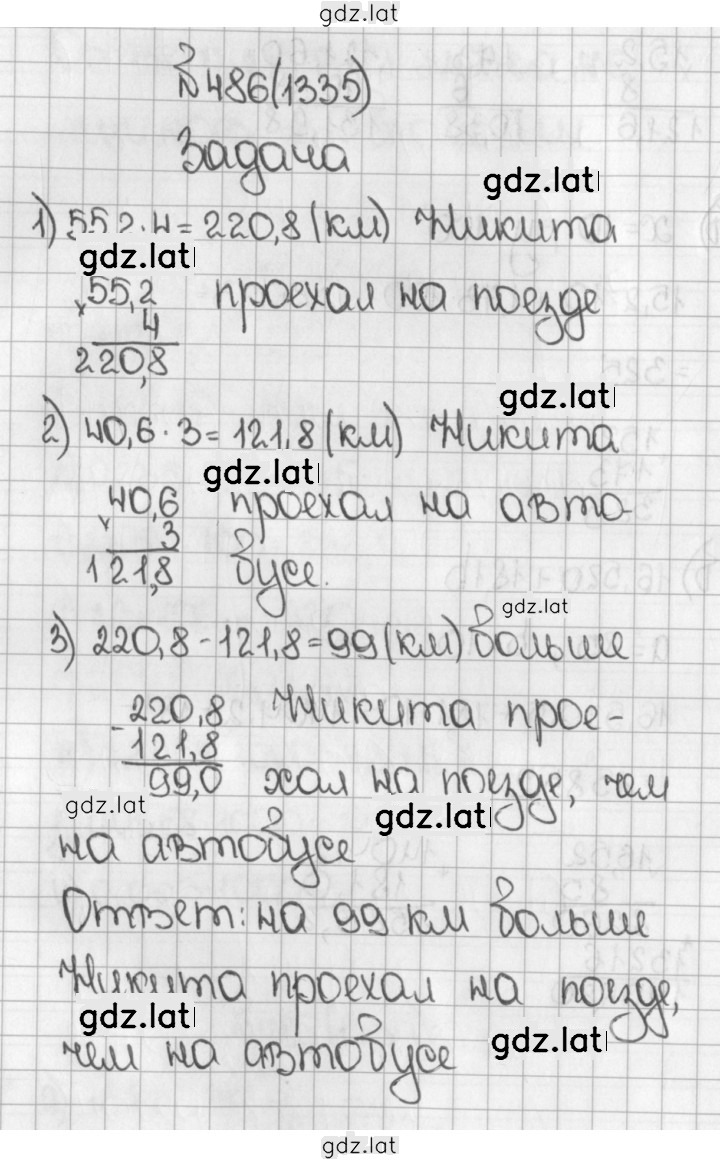 gdz.lat
№486(1335)
Задача
gdz.lat
1) 55,2·4=220,8(км) Никита
gdz.lat
×55,2 проехал на поезде
4
220,8
gdz.lat
2) 40,6·3=121,8(км) Никита
gdz.lat
×40,6 проехал на авто-
3
121,8 бусе.
gdz.lat
3) 220,8-121,8=99(км) больше
-220,8 Никита прое-
121,8
99,0 хал на поезде, чем
gdz.lat
gdz.lat
на автобусе
Ответ: на 99 км больше
Никита проехал на поезде,
gdz.lat
чем на автобусе
gdz.lat
gdz.lat